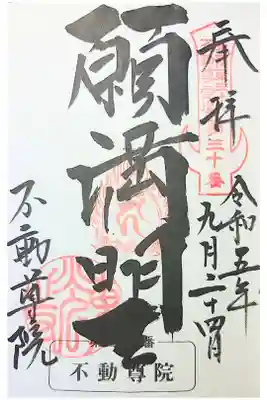 奉拝
三十番
令和五年
九月二十四日
願満明王
不動尊院
番
不動尊院